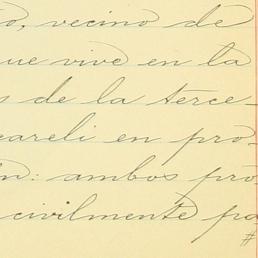 o, vecino de
ue vive en la
s de la terce-
careli en pro-
n: ambos pro-
civilmente pa
#